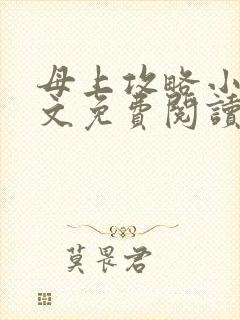 母上攻略小
文免費閱讀
莫畏君